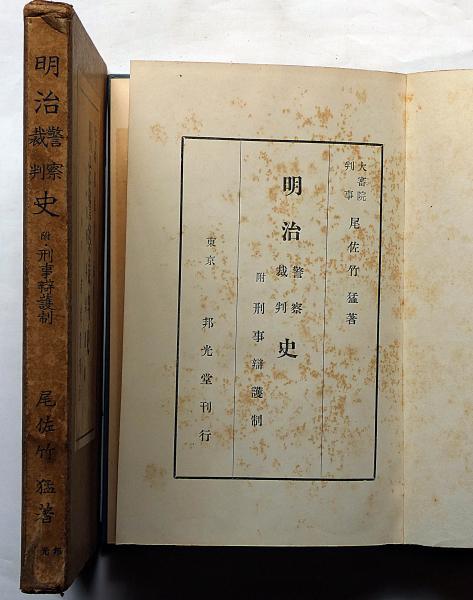 大審院
判事 尾佐竹猛著
明治警察裁判史
附 刑事辯護制
東京 邦光堂刊行
明治警察裁判史
附・刑事辯護制
尾佐竹猛著
邦光